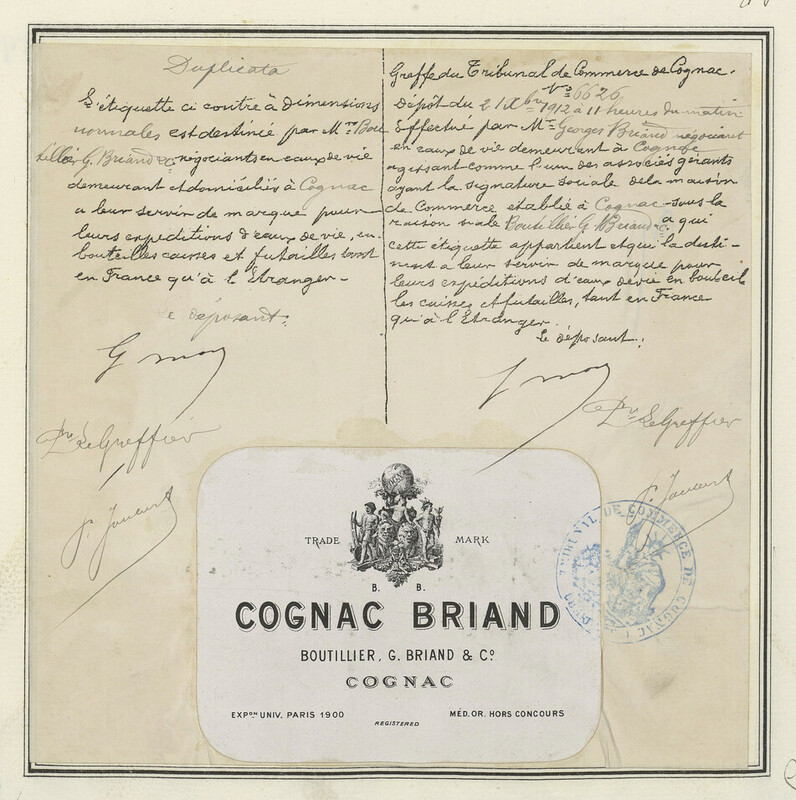 Duplicata
L'étiquette ci contre à dimensions
normales est destinée par Mrs Bou
tillier G. Briand & Co négociants en eaux de vie
demeurant et domiciliés à Cognac
a leur servir de marque pour
leurs expéditions d'eaux de vie, en
bouteilles caisses et futailles tant
en France qu'à l'Etranger.-
Le déposant:
Pr Le Greffier
Greffe du Tribunal de Commerce de Cognac.
No 6626
Dépôt du 21 Xbre 1912 à 11 heures du matin
Effectué par Mr Georges Briand négociant
en eaux de vie demeurant à Cognac
agissant comme l'un des associés gérants
ayant la signature sociale de la maison
de Commerce etablie à Cognac sous la
raison siale Boutillier G. Briand & Co a qui
cette étiquette appartient et qui la desti-
nent a leur servir de marque pour
leurs expéditions d'eaux de vie en bouteil
les caisses et futailles, tant en France
qu'à l'Etranger.
Le déposant:
Pr Le Greffier
TRADE MARK
B. B.
COGNAC BRIAND
BOUTILLIER, G. BRIAND & Co
COGNAC
EXPON UNIV. PARIS 1900 MÉD. OR. HORS CONCOURS
REGISTERED
TRIBUNAL DE COMMERCE DE COGNAC